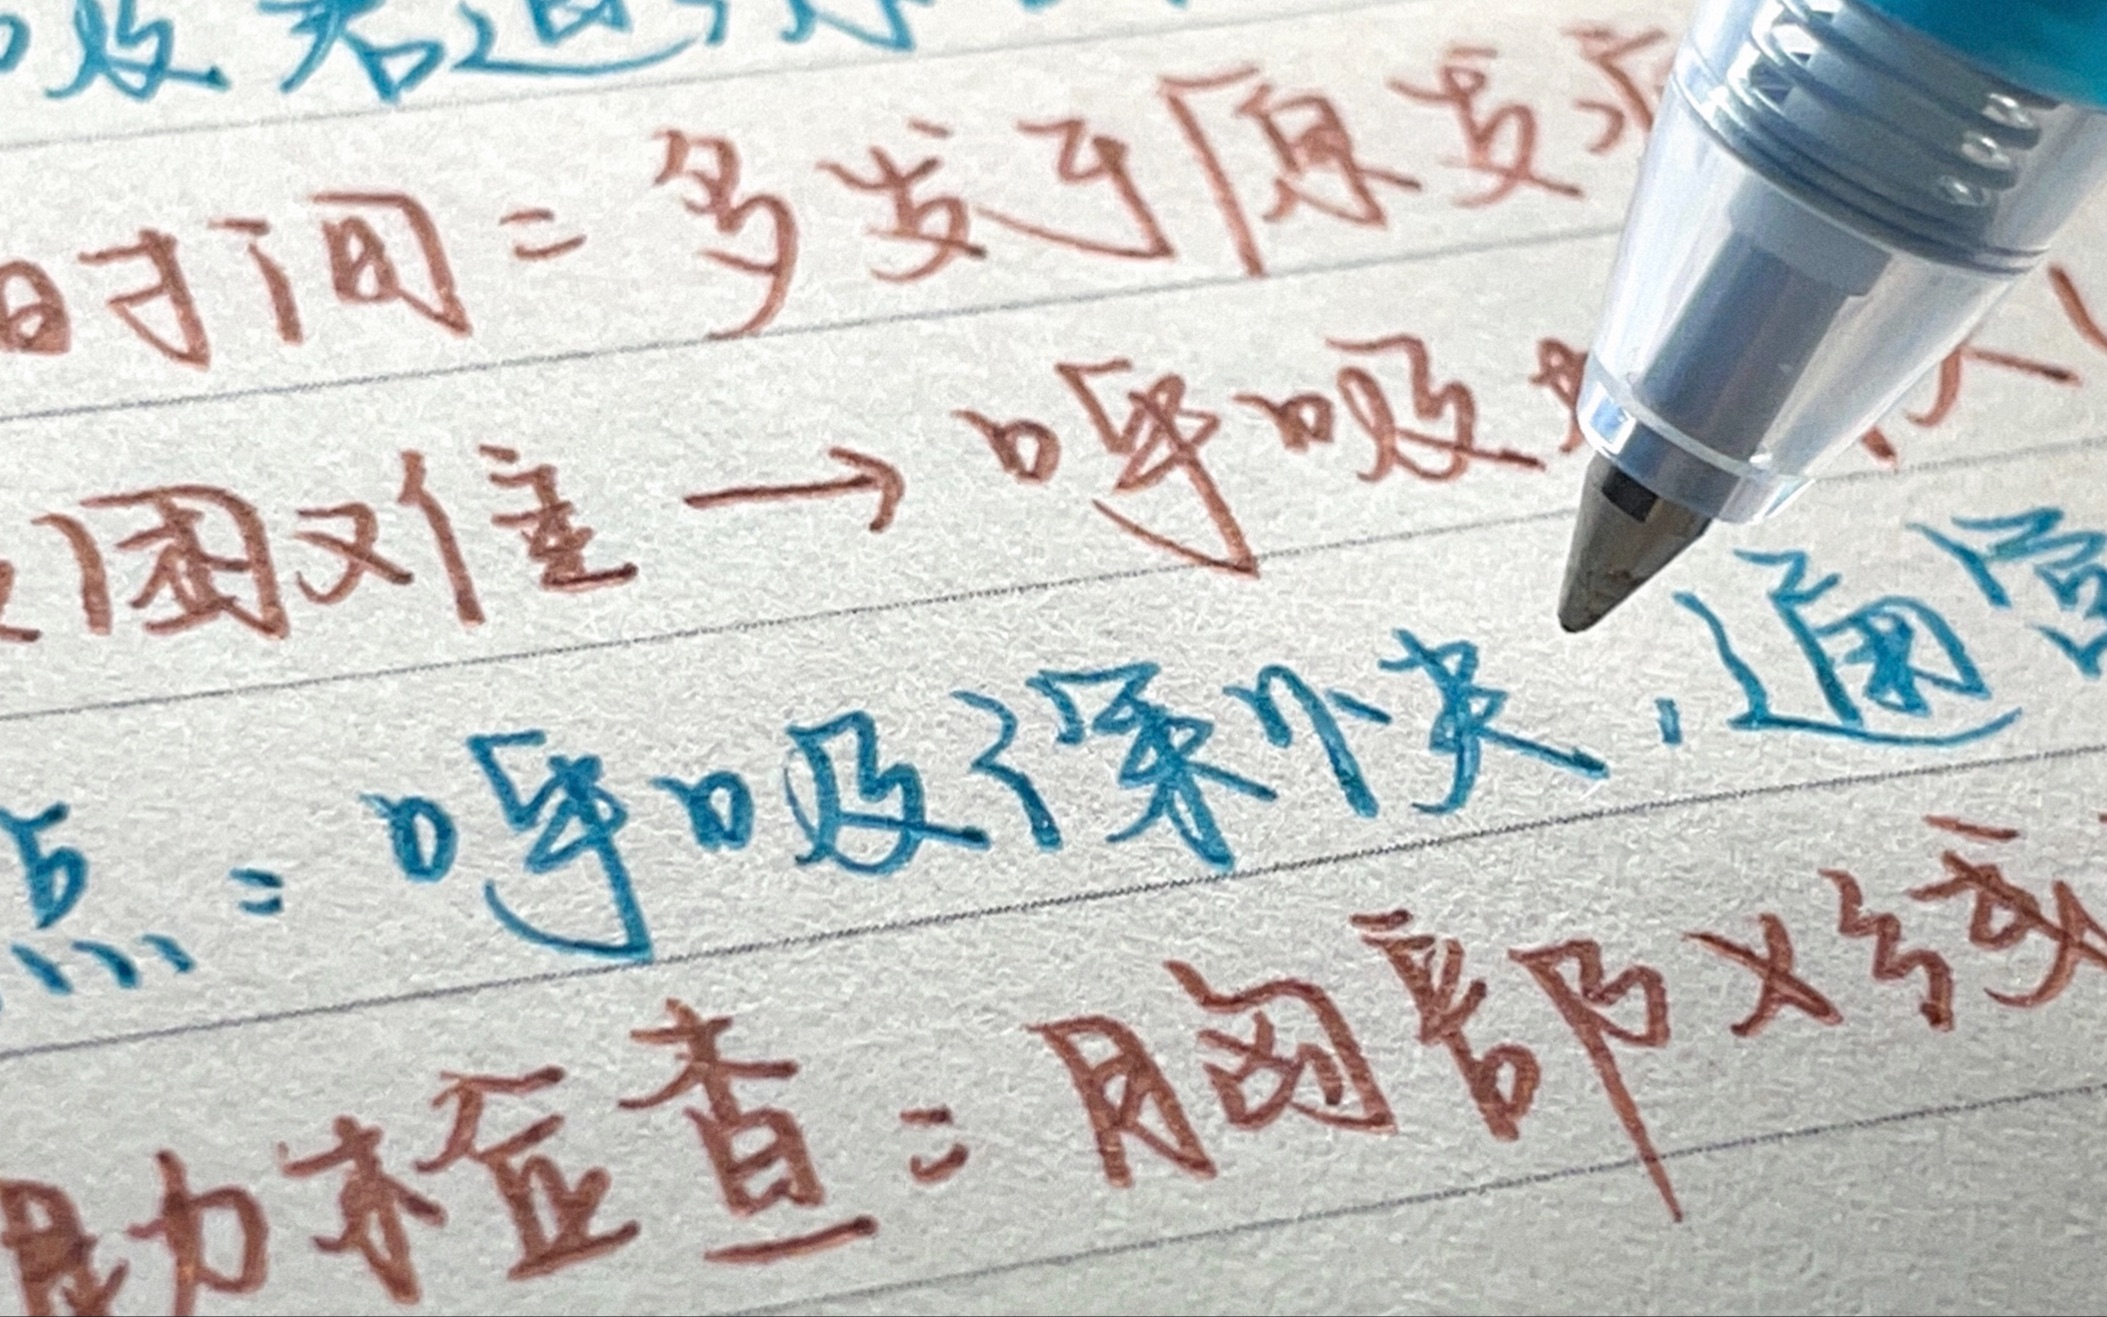 吸若通
时间：多发于原发
困难→呼吸
点：呼吸深快，通常
助检查：胸部X线